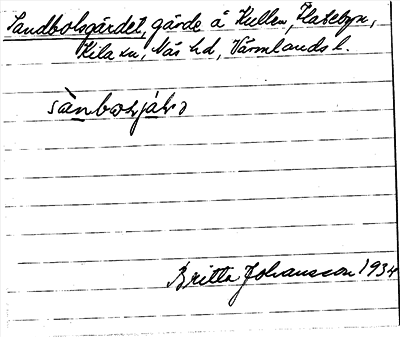 Sandbolsgärdet, gärde å Kullen,
Kila sn, Näs hd, Värmlands l.
Britta Johansson 1934